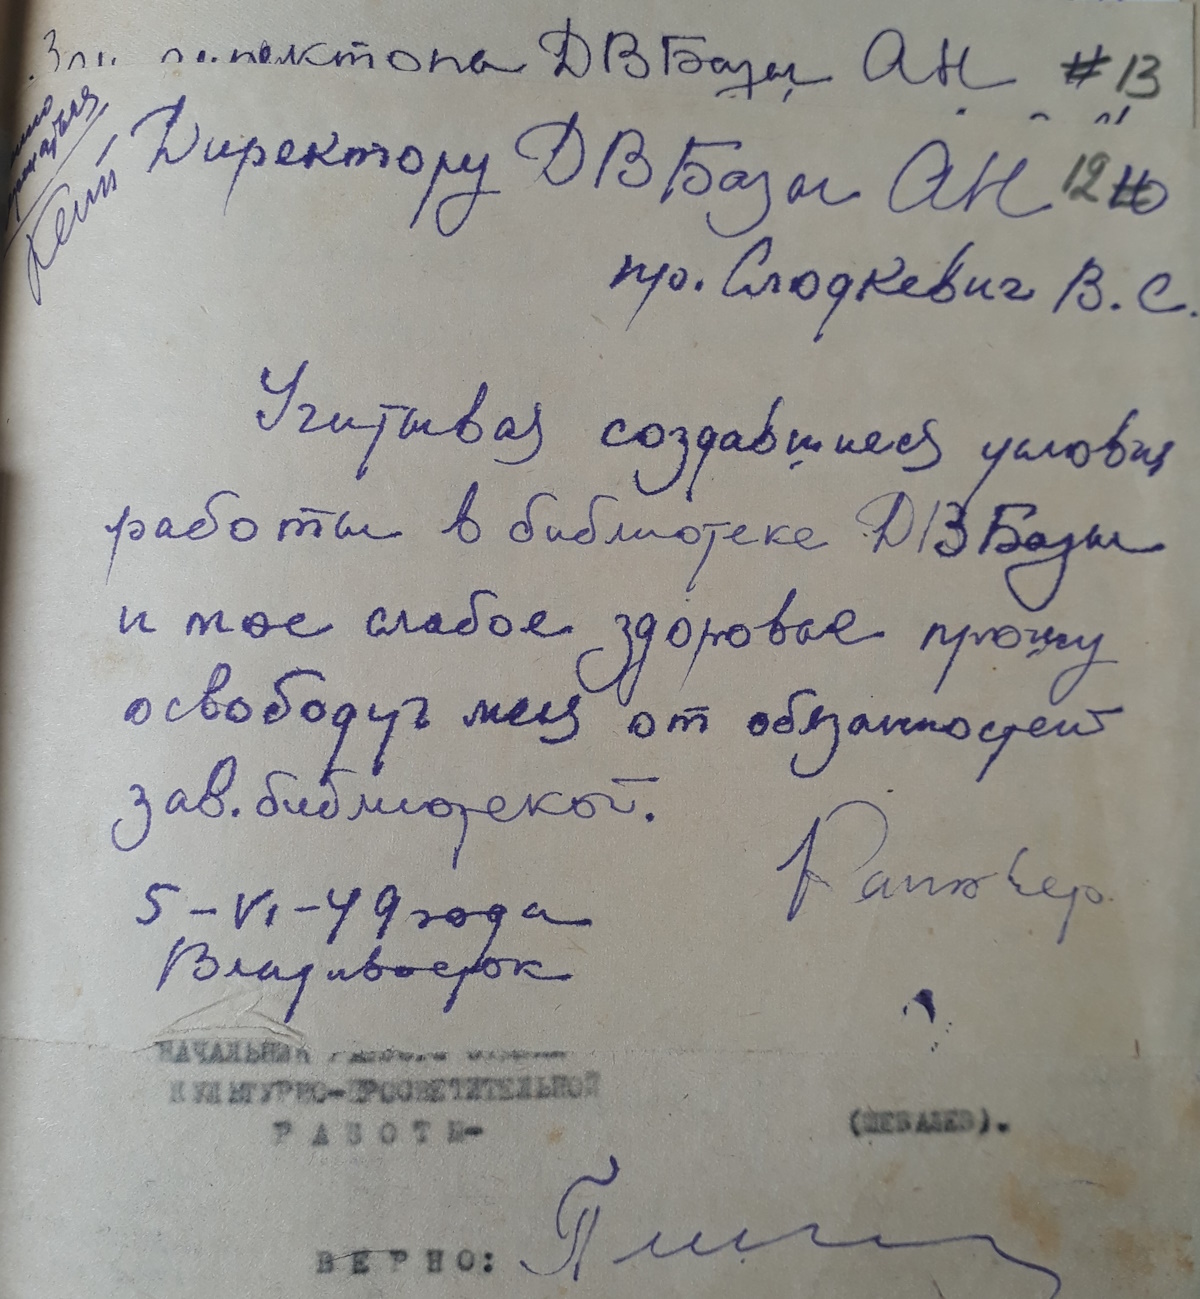 директора ДВБазы АН #13
Директору ДВБазы АН 12
пр. Слодкевич В.С.
Учитывая создавшиеся условия
работы в библиотеке ДВБазы
и мое слабое здоровье прошу
освободить меня от обязанностей
зав. библиотекой.
5-VI-49 года
Владивосток
НАЧАЛЬНИК
КУЛЬТУРНО-ПРОСВЕТИТЕЛЬНОЙ
РАБОТЫ-
(ШЕВАЛЕВ).
ВЕРНО: